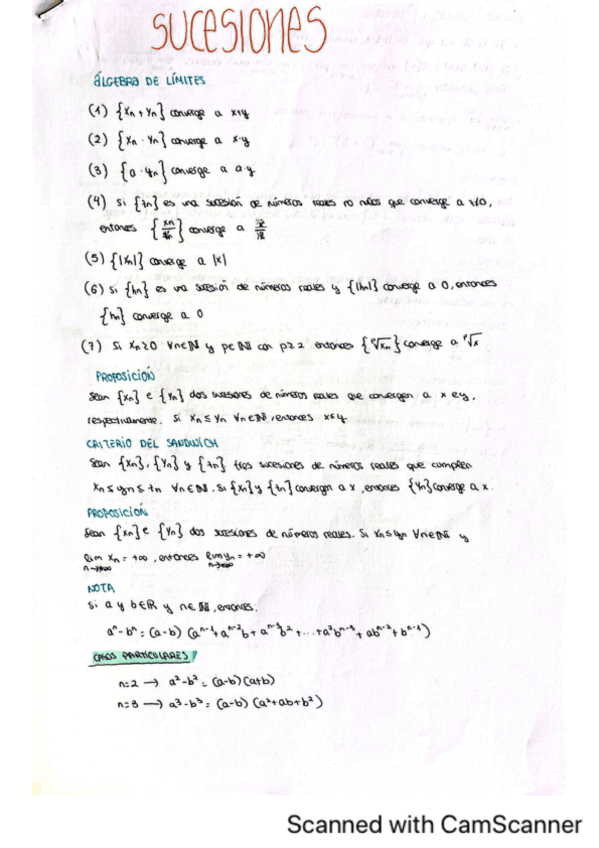 SUCESIONES
ÁLGEBRA DE LÍMITES
(1) {xn + yn} converge a x+y
(2) {xn · yn} converge a x·y
(3) {a · yn} converge a a·y
(4) Si {zn} es una sucesión de números reales no nulos que converge a z≠0,
entonces {xn/zn} converge a x/z
(5) {|xn|} converge a |x|
(6) Si {hn} es una sucesión de números reales y {|hn|} converge a 0, entonces
{hn} converge a 0
(7) Si xn≥0 ∀n∈ℕ y p∈ℕ con p≥2 entonces {ᵖ√xn} converge a ᵖ√x
PROPOSICIÓN
Sean {xn} e {yn} dos sucesiones de números reales que convergen a x e y,
respectivamente. Si xn ≤ yn ∀n∈ℕ, entonces x≤y
CRITERIO DEL SANDWICH
Sean {xn}, {yn} y {zn} tres sucesiones de números reales que cumplen
xn ≤ yn ≤ zn ∀n∈ℕ. Si {xn} y {zn} convergen a x, entonces {yn} converge a x.
PROPOSICIÓN
Sean {xn} e {yn} dos sucesiones de números reales. Si xn≤yn ∀n∈ℕ y
lim xn = +∞, entonces lim yn = +∞
n→+∞ n→+∞
NOTA
Si a y b∈ℝ y n∈ℕ, entonces:
aⁿ-bⁿ = (a-b) (aⁿ⁻¹ + aⁿ⁻²b + aⁿ⁻³b² + ... + a²bⁿ⁻³ + abⁿ⁻² + bⁿ⁻¹)
CASOS PARTICULARES
n=2 → a²-b² = (a-b)(a+b)
n=3 → a³-b³ = (a-b) (a²+ab+b²)
Scanned with CamScanner